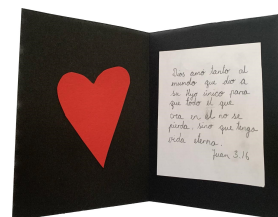 Dios amó tanto al
mundo que dio a
su Hijo único para
que todo el que
crea en él no se
pierda, sino que tenga
vida eterna.
Juan 3:16